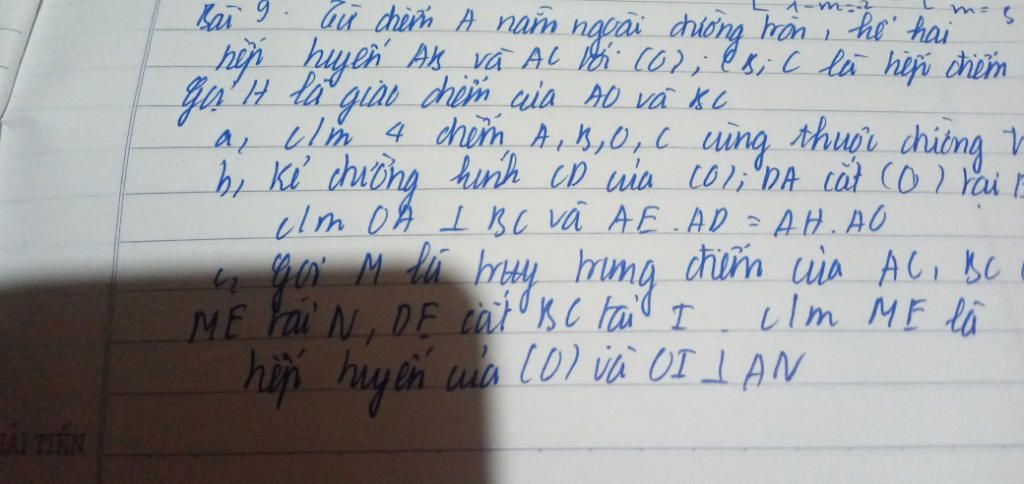 λ-m=-2 m=5
Bài 9. Từ điểm A nằm ngoài đường tròn, kẻ hai
tiếp tuyến AB và AC với (O); (B; C là tiếp điểm
Gọi H là giao điểm của AO và BC
a, c/m 4 điểm A, B, O, C cùng thuộc đường
b, Kẻ đường kính CD của (O); DA cắt (O) tại
c/m OA ⊥ BC và AE.AD = AH.AO
c, Gọi M là trung điểm của AC, BC
ME tại N, DE cắt BC tại I. c/m ME là
tiếp tuyến của (O) và OI ⊥ AN
HẢI TIẾN